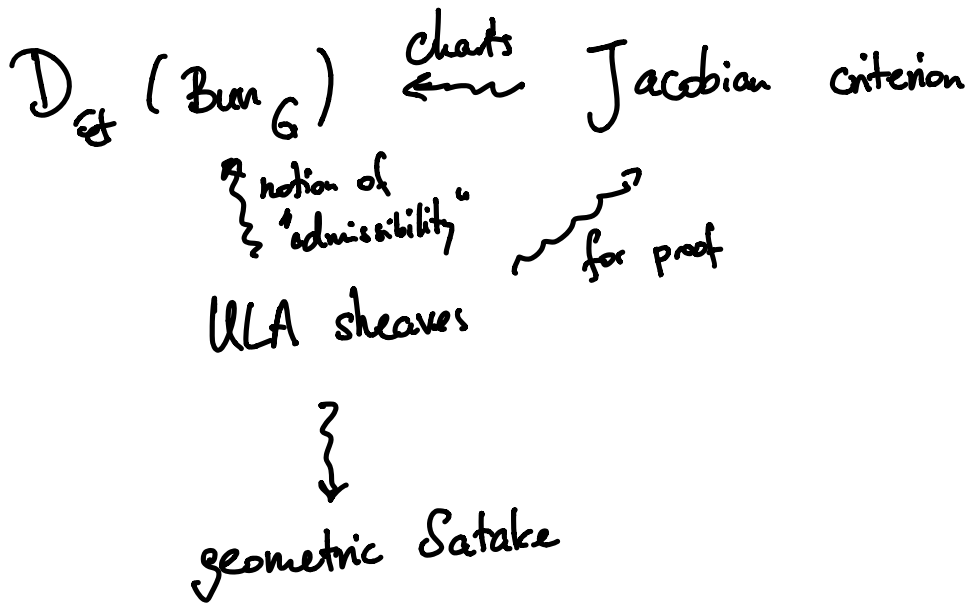 D_ét (Bun_G) charts Jacobian criterion
notion of
"admissibility"
for proof
ULA sheaves
geometric Satake